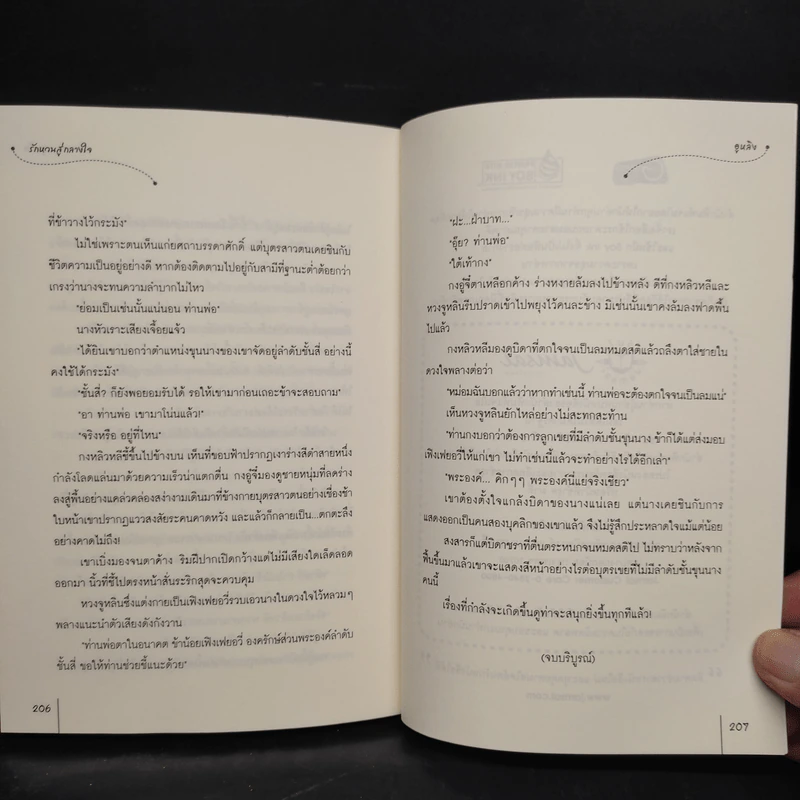 รักหวานสู่กลางใจ
ที่ข้าวางไว้กระมัง"
ไม่ใช่เพราะตนเห็นแก่ยศถาบรรดาศักดิ์ แต่บุตรสาวตนเคยชินกับ
ชีวิตความเป็นอยู่อย่างดี หากต้องติดตามไปอยู่กับสามีที่ฐานะต่ำต้อยกว่า
เกรงว่านางจะทนความลำบากไม่ไหว
"ย่อมเป็นเช่นนั้นแน่นอน ท่านพ่อ"
นางหัวเราะเสียงเจื้อยแจ้ว
"ได้ยินเขาบอกว่าตำแหน่งขุนนางของเขาจัดอยู่ลำดับชั้นสี่ อย่างนี้
คงใช้ได้กระมัง"
"ชั้นสี่? ก็ยังพอยอมรับได้ รอให้เขามาก่อนเถอะข้าจะสอบถาม"
"อา ท่านพ่อ เขามาโน่นแล้ว!"
"จริงหรือ อยู่ที่ไหน"
กงหลิวหลีชี้ขึ้นไปข้างบน เห็นที่ขอบฟ้าปรากฏเงาร่างสีดำสายหนึ่ง
กำลังโลดแล่นมาด้วยความเร็วน่าแตกตื่น กงอู่จี๋มองดูชายหนุ่มที่ลดร่าง
ลงสู่พื้นอย่างแคล่วคล่องสง่างามเดินมาที่ข้างกายบุตรสาวตนอย่างเชื่องช้า
ใบหน้าเขาปรากฏแววสงสัยระคนคาดหวัง และแล้วก็กลายเป็น...ตกตะลึง
อย่างคาดไม่ถึง!
เขาเบิ่งมองจนตาค้าง ริมฝีปากเปิดกว้างแต่ไม่มีเสียงใดเล็ดลอด
ออกมา นิ้วที่ชี้ไปตรงหน้าสั่นระริกสุดจะควบคุม
หวงจูหลินซึ่งแต่งกายเป็นเฟิงเฟยอวี่รวบเอวนางในดวงใจไว้หลวมๆ
พลางแนะนำตัวเสียงดังกังวาน
"ท่านพ่อตาในอนาคต ข้าน้อยเฟิงเฟยอวี่ องครักษ์ส่วนพระองค์ลำดับ
ชั้นสี่ ขอให้ท่านช่วยชี้แนะด้วย"
206
อูหลิง
"ฝะ...ฝ่าบาท..."
"อุ๊ย? ท่านพ่อ"
"ใต้เท้ากง"
กงอู่จี๋ตาเหลือกค้าง ร่างหงายล้มลงไปข้างหลัง ดีที่กงหลิวหลีและ
หวงจูหลินรีบปราดเข้าไปพยุงไว้คนละข้าง มิเช่นนั้นเขาคงล้มลงฟาดพื้น
ไปแล้ว
กงหลิวหลีมองดูบิดาที่ตกใจจนเป็นลมหมดสติแล้วถลึงตาใส่ชายใน
ดวงใจพลางต่อว่า
"หม่อมฉันบอกแล้วว่าหากทำเช่นนี้ ท่านพ่อจะต้องตกใจจนเป็นลมแน่"
เห็นหวงจูหลินยักไหล่อย่างไม่สะทกสะท้าน
"ท่านกงบอกว่าต้องการลูกเขยที่มีลำดับชั้นขุนนาง ข้าก็ได้แต่ส่งมอบ
เฟิงเฟยอวี่ให้แก่เขา ไม่ทำเช่นนี้แล้วจะทำอย่างไรได้อีกเล่า"
"พระองค์... คิกๆๆ พระองค์นี่แย่จริงเชียว"
เขาต้องตั้งใจแกล้งบิดาของนางแน่เลย แต่นางเคยชินกับการ
แสดงออกเป็นคนสองบุคลิกของเขาแล้ว จึงไม่รู้สึกประหลาดใจแม้แต่น้อย
สงสารก็แต่บิดาชราที่ตื่นตระหนกจนหมดสติไป ไม่ทราบว่าหลังจาก
ฟื้นขึ้นมาแล้วเขาจะแสดงสีหน้าอย่างไรต่อบุตรเขยที่ไม่มีลำดับชั้นขุนนาง
คนนี้
เรื่องที่กำลังจะเกิดขึ้นดูท่าจะสนุกยิ่งขึ้นทุกทีแล้ว!
(จบบริบูรณ์)
207